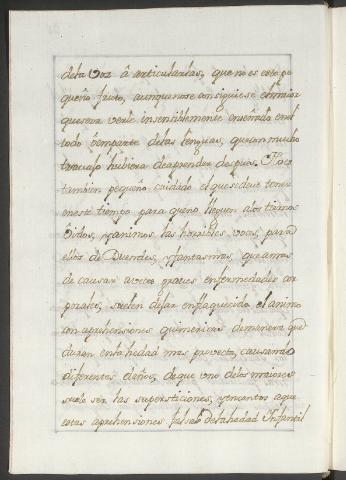 dela Voz â articularlas, que no es este pe
queño fruto, aunque no se consiguiese
que sera verle insensiblemente enseñado en el
todo ô en parte de las lenguas, que con mucho
travajo hubiera de aprender despues. No es
tambien pequeño cuidado el que se deve tener
en este tiempo para que no lleguen a los tiernos
Oidos, y animos las horribles voces, para
ellos de Duendes, y fantasmas, que a mas
de causar a veces graves enfermedades cor
porales, suelen dejar enflaquecido el animo
con aprehensiones quimericas de manera que
duran en la hedad mas provecta, causando
diferentes daños, de que uno de los maiores
suele ser las supersticiones, y encantos a que
estas aprehensiones falsas de la hedad Infantil